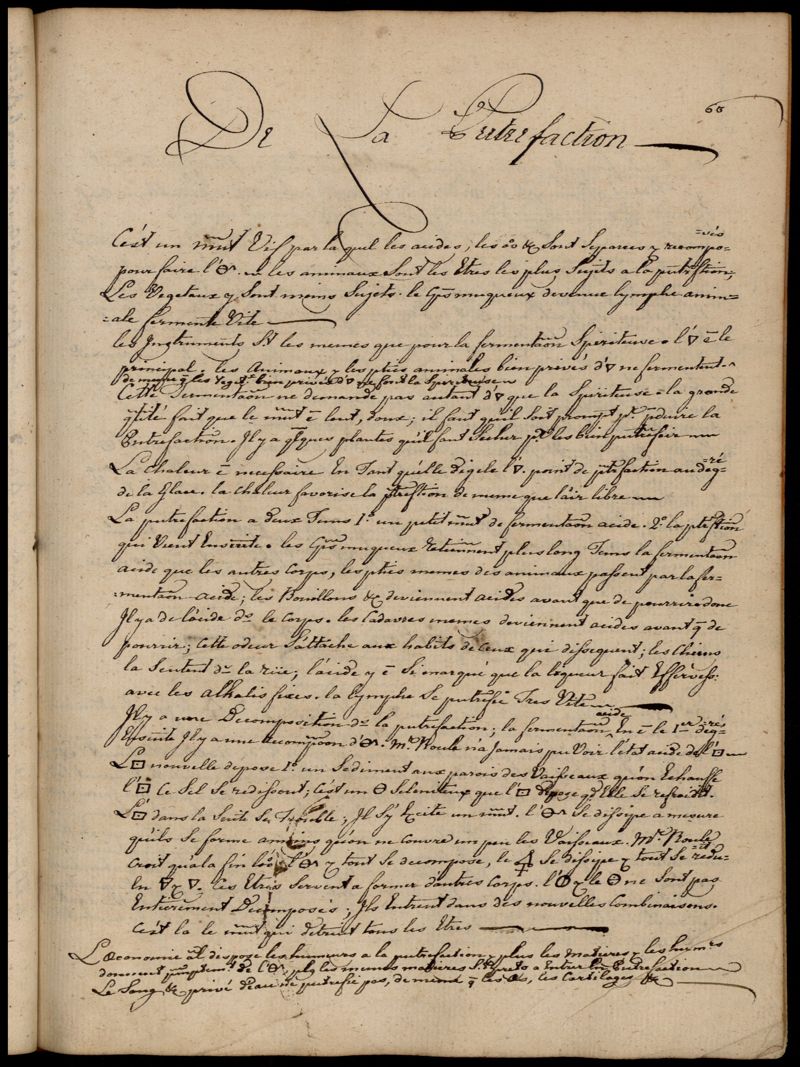 60
De La Putrefaction
C'est un mũt Vif par la quel les acides, les &c Sont Separees & recompo=sés
pour faire l' les animaux Sont les Etres les plus Sujets a la
Les Vegetaux y Sont moins Sujets. le muqueux devenue lymphe anim=
=ale fermente Vite
les Instruments St les memes que pour la fermentaõn Spiritueuse. l'🜄 ē le
principal, les Animaux & les pties animales bien privés d'🜄 ne fermentent.
de meme les bien privés d'🜄 ne font la Spiritueuse
Cette fermentaõn ne demande pas autant d'🜄 que la Spiritueuse. la grande
qtité fait que le mũt ē lent, doux; il faut qu'il Soit prompt pr pduire la
Putrefaction. Il y a qlques plantes qu'il faut Secher pr les bien putrefier
La chaleur ē necessaire En Tant qu'elle degele l'🜄. point de ptrefaction au deg=ré
de la Glace. la chaleur favorise la de meme que l'air libre
La putrefaction a deux Tems 1.° un petit mũt de fermentaõn acide. 2.° la
qui Vient Ensuite. les muqueux retiennent plus long Tems la fermentaõn
acide que les autres Corps, les pties memes des animaux passent par la fer=
=mentaõn acide; les Bouillons &c deviennent acides avant que de pourrir donc
Il y a de l'acide ds le Corps. les Cadavres memes deviennent acides avant q de
pourrir; Cette odeur S'attache aux habits de Ceux qui dissequent; les Chiens
la Sentent ds la rüe; l'acide y ē Si marqué que la liqueur fait Effervess:
avec les alkalis fixes. la lymphe Se putrefie Tres Vite
Il y a une Decomposition ds la putrefaction; la fermentaõn acide En ē le 1er deg=rés
Ensuite Il y a une recompõon d' Mr Roule n'a Jamais pu Voir l'état acide de l'□
L'□ nouvelle depose 1.° un Sediment aux parois des Vaisseaux qu'on Echauffe
l'□ Ce Sel Se redissout; C'est un Seleniteux que l'□ depose qd Elle Se refroidit.
L'□ dans la Suite Se Trouble; Il S'y Excite un mũt. l' Se dissipe a mesure
qu'ils Se forme amoins qu'on ne Couvre un peu les Vaisseaux. Mr Roule
Croit qu'a la fin l' & tout Se decompose, le 🜍 Se dissipe & tout Se redu=it
En 🜄 & 🜃. les Etres Servent a former d'autres Corps. l' & le ne Sont pas
Entierement Decomposés; Ils Entrent dans des nouvelles Combinaisons.
C'est là le mũt qui detruit tous les Etres
L'œconomie dispose les humeurs a la putrefaction. plus les matieres & les humrs
donnent de l' plus les memes matieres St Sujets a Entrer En Putrefaction
Le Sang &c privé d'eau ne putrefie pas, de meme q les os, les Cartilages &c